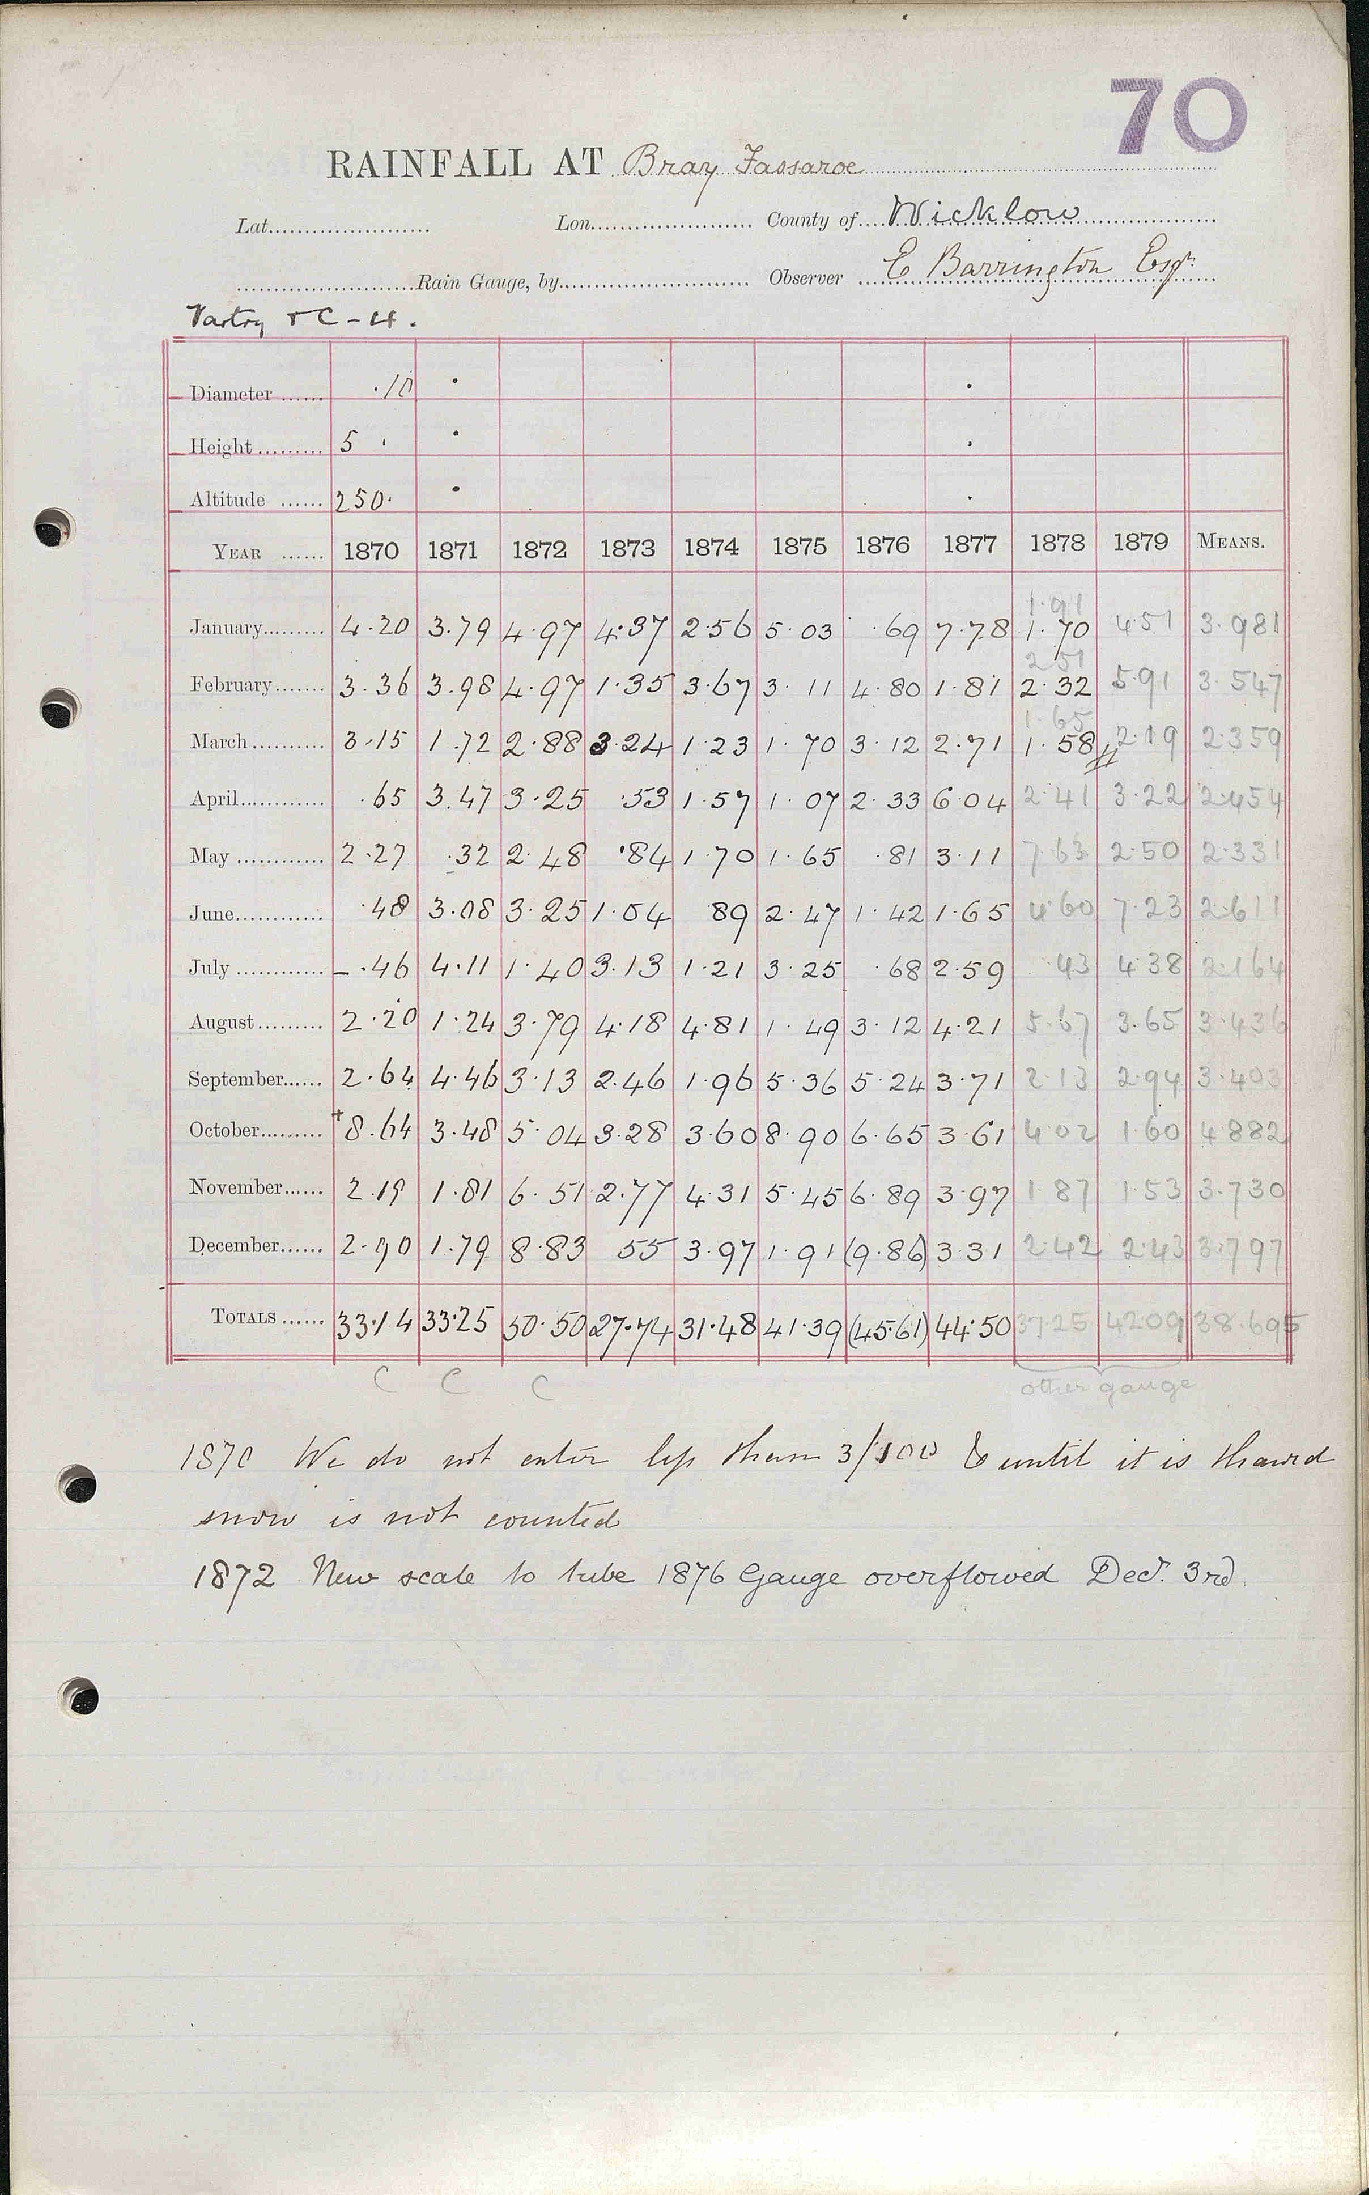 70
RAINFALL AT Bray Fassaroe
Lat. Lon. County of Wicklow
Rain Gauge, by Observer E Barrington Esqr
Vartry + C - 4.
Diameter ·10
Height 5
Altitude 250·
YEAR 1870 1871 1872 1873 1874 1875 1876 1877 1878 1879 MEANS.
1·91
January 4·20 3·79 4·97 4·37 2·56 5·03 ·69 7·78 1·70 4·51 3·981
2·51
February 3·36 3·98 4·97 1·35 3·67 3·11 4·80 1·81 2·32 5·91 3·547
1·65
March 3·15 1·72 2·88 3·24 1·23 1·70 3·12 2·71 1·58 2·19 2·359
April ·65 3·47 3·25 ·53 1·57 1·07 2·33 6·04 2·41 3·22 2·454
May 2·27 ·32 2·48 ·84 1·70 1·65 ·81 3·11 7·63 2·50 2·331
June ·48 3·08 3·25 1·04 89 2·47 1·42 1·65 4·60 7·23 2·611
July ·46 4·11 1·40 3·13 1·21 3·25 ·68 2·59 ·43 4·38 2·164
August 2·20 1·24 3·79 4·18 4·81 1·49 3·12 4·21 5·67 3·65 3·436
September 2·64 4·46 3·13 2·46 1·96 5·36 5·24 3·71 2·13 2·94 3·403
October +8·64 3·48 5·04 3·28 3·60 8·90 6·65 3·61 4·02 1·60 4·882
November 2·19 1·81 6·51 2·77 4·31 5·45 6·89 3·97 1·87 1·53 3·730
December 2·90 1·79 8·83 55 3·97 1·91 (9·86) 3·31 2·42 2·43 3·797
TOTALS 33·14 33·25 50·50 27·74 31·48 41·39 (45·61) 44·50 37·25 42·09 38·695
C C C other gauge
1870 We do not enter less than 3/100 & until it is thawed
snow is not counted
1872 New scale to tube 1876 Gauge overflowed Decr. 3rd.